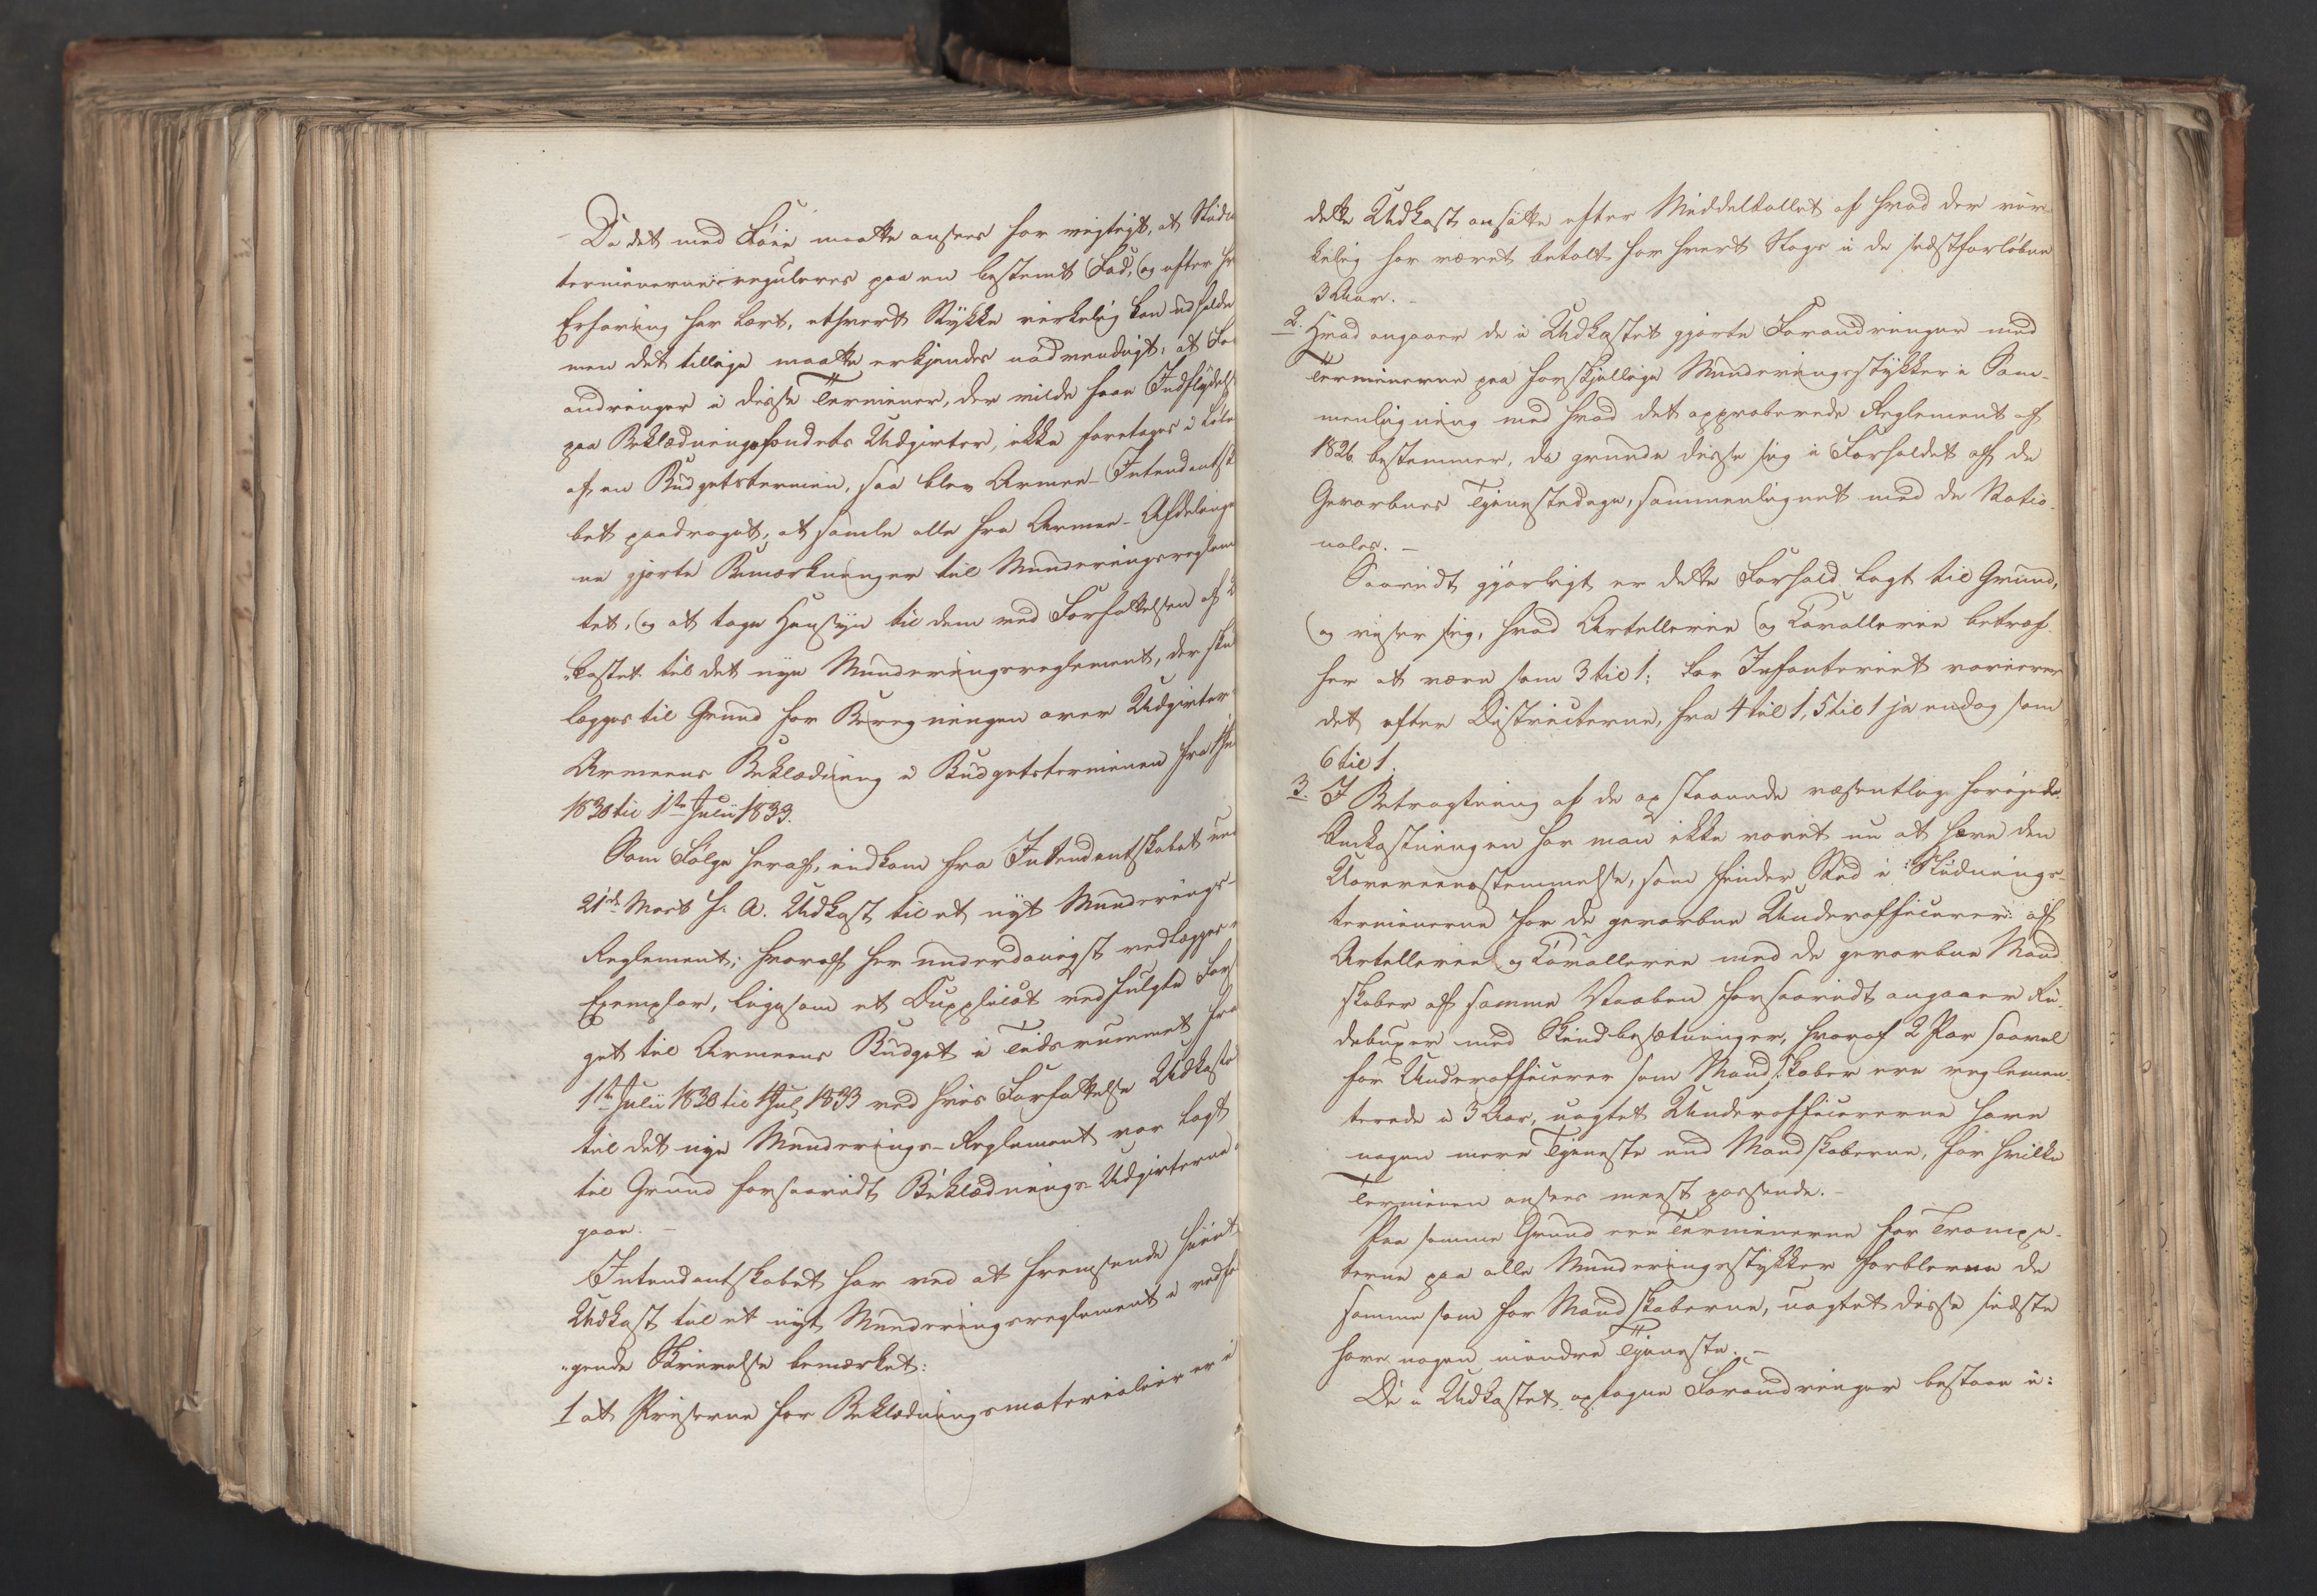 Da det med Føie maatte ansees for vigtigt, at Slids
terminerne reguleres paa en bestemt Fod, og efter
Erfaring har lært, ethvert Stykke virkelig kan udholde
men det tillige maatte erkjendes nødvendigt, at For
andringer i disse Terminer, der vilde have Indflydelse
paa Beklædningsfondets Udgivter, ikke foretages i Løbe
af en Budgetstermin, saa blev Armee-Intendantska
bet paadraget, at samle alle fra Armee-Afdelinge
ne gjorte Bemærkninger til Munderingsreglem
tet, og at tage Hensyn til dem ved Forfattelsen af U
kastet til det nye Munderingsreglement, der skul
lægges til Grund for Beregningen over Udgivter
Armeens Beklædning i Budgetsterminen fra 1ste
1830 til 1ste Julii 1833.
Som Følge heraf, indkom fra Intendantskabet und
21de Marts h. A. Udkast til et nyt Munderings-
Reglement; hvoraf her underdanigst vedlægges
Exemplar, ligesom et Dupplicat vedfulgte For
get til Armeens Budget i Tidsrummet fra
1ste Julii 1830 til 1 Juli 1833 ved hvis Forfattelse Udkaste
til det nye Munderings-Reglement var lagt
til Grund forsaavidt Beklædnings-Udgivterne
gaae. -
Intendantskabet har ved at fremsende hiint
Udkast til et nyt Munderingsreglement i vedfø
gende Skrivelse bemærket:
1 at Priserne for Beklædningsmaterialier er i
dette Udkast ansatte efter Middeltallet af hvad der vir-
kelig har været betalt for hvert Slags i de sidstforløbne
3 Aar. -
2. Hvad angaaer de i Udkastet gjorte Forandringer med
Terminerne paa forskjellige Munderingsstykker i Sam-
menligning med hvad det approberede Reglement af
1826 bestemmer, da grunde disse sig i Forholdet af de
Gevorbnes Tjenestedage, sammenlignet med de Natio-
nales. -
Saavidt gjørligt er dette Forhold lagt til Grund,
og viser sig, hvad Artelleriee og Cavalleriee betræf-
fer at være som 3 til 1; for Infanteriet varierer
det efter Districterne, fra 4 til 1, 5 til 1 ja endog som
6 til 1.
3. I Betragtning af de opstaaende væsentlig forøgede
Omkostningen har man ikke vovet nu at hæve den
Uovereensstemmelse, som finder Sted i Slidnings-
terminerne for de gevorbne Underofficerer af
Artelleriee og Cavalleriee med de gevorbne Mand-
skaber af samme Vaaben forsaavidt angaaer Ri-
debuxer med Skindbesætninger, hvoraf 2 Par saavel
for Underofficerer som Mandskaber ere reglemen-
terede i 5 Aar, uagtet Underofficererne have
nogen mere Tjeneste end Mandskaberne, for hvilke
Terminen ansees meest passende. -
Paa samme Grund ere Terminerne for Trompe-
terne paa alle Munderingsstykker forblevne de
samme som for Mandskaberne, uagtet disse sidste
have nogen mindre Tjeneste. -
De i Udkastet optagne Forandringer bestaae i: